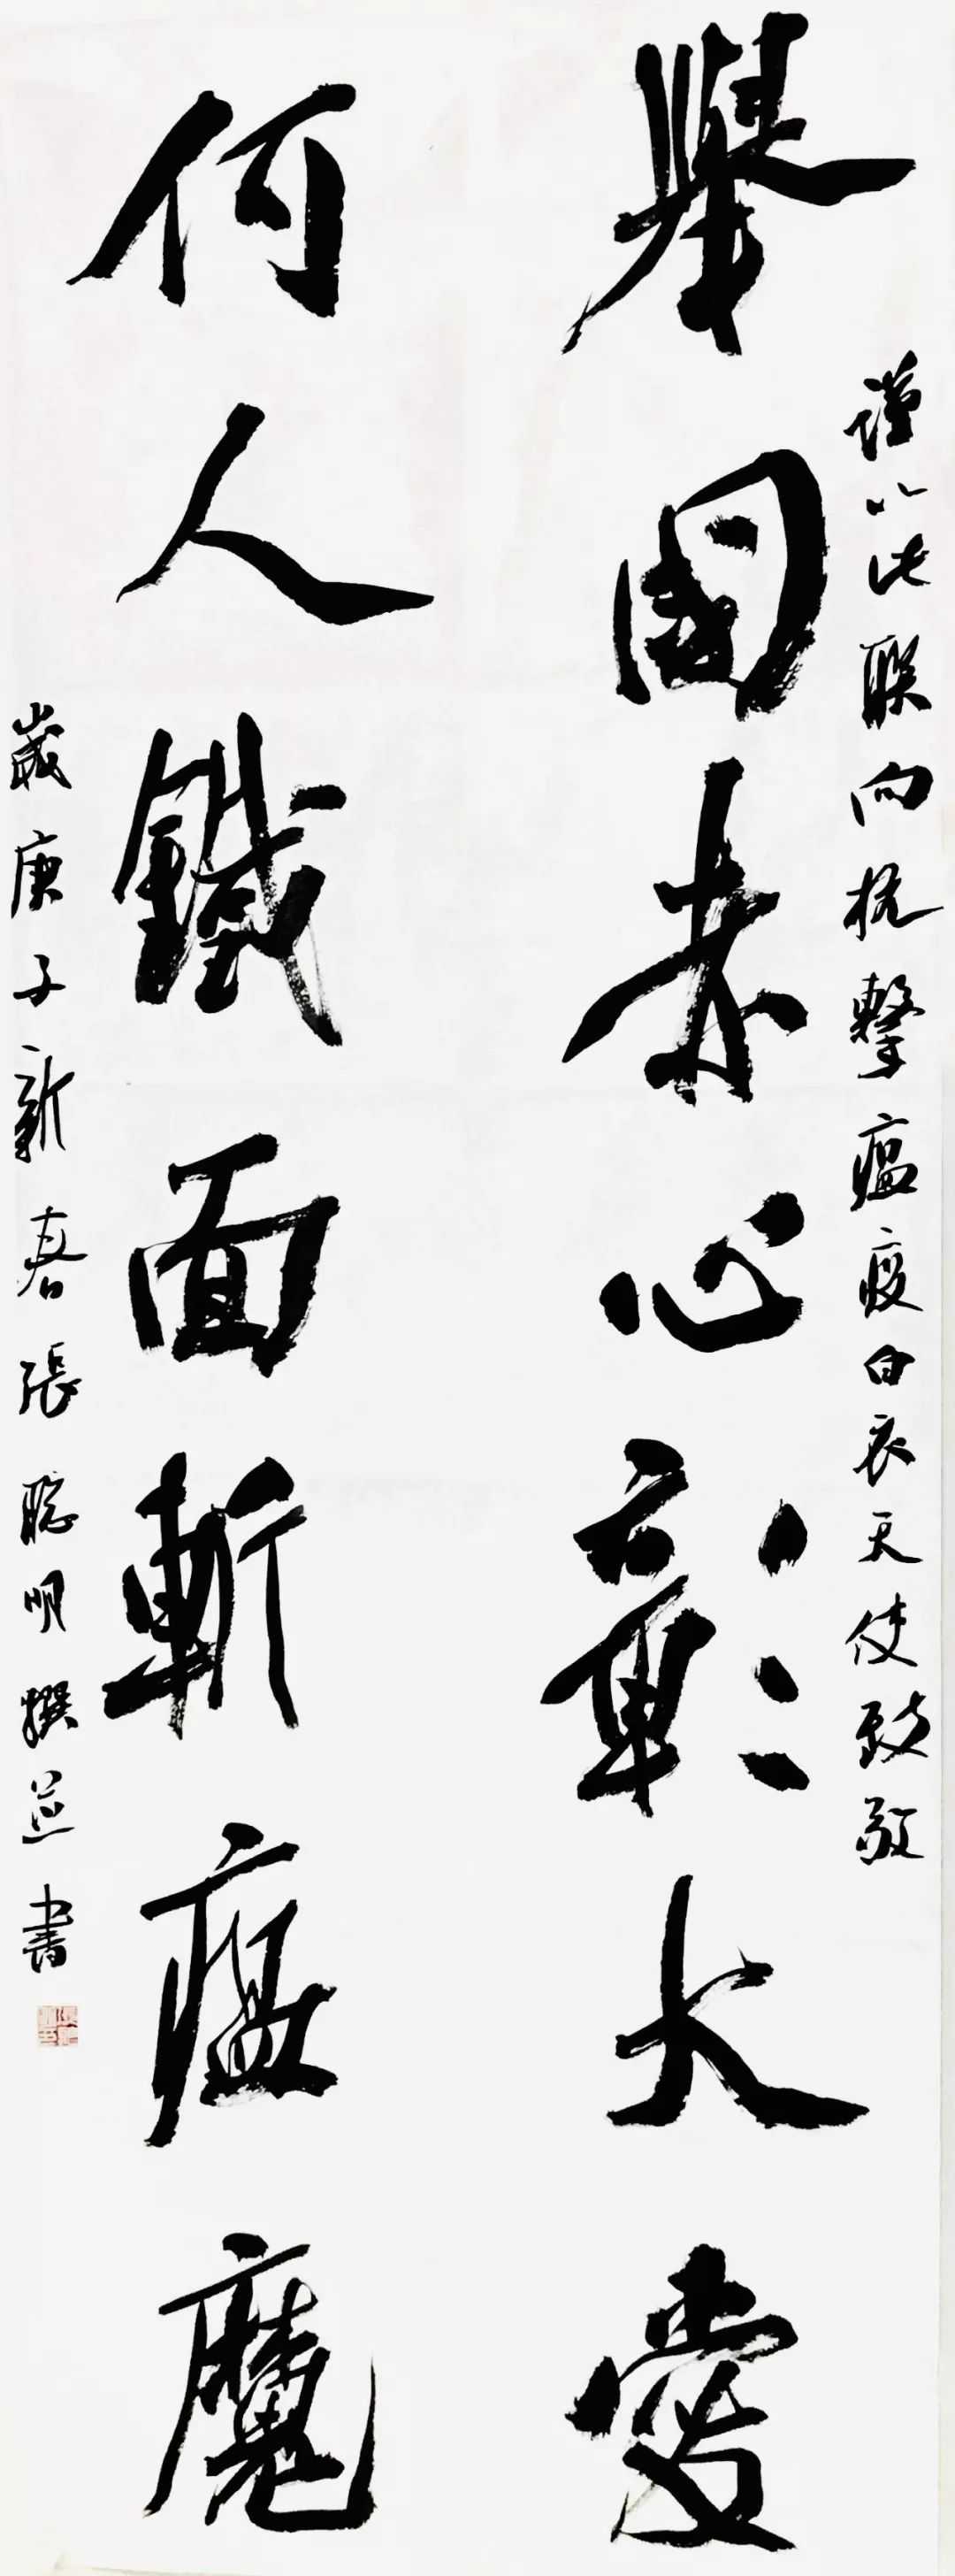 舉國赤心彰大愛
謹以此联向抗擊瘟疫白衣天使致敬
何人鐵面斬瘟魔
歲庚子新春張聪明撰並書